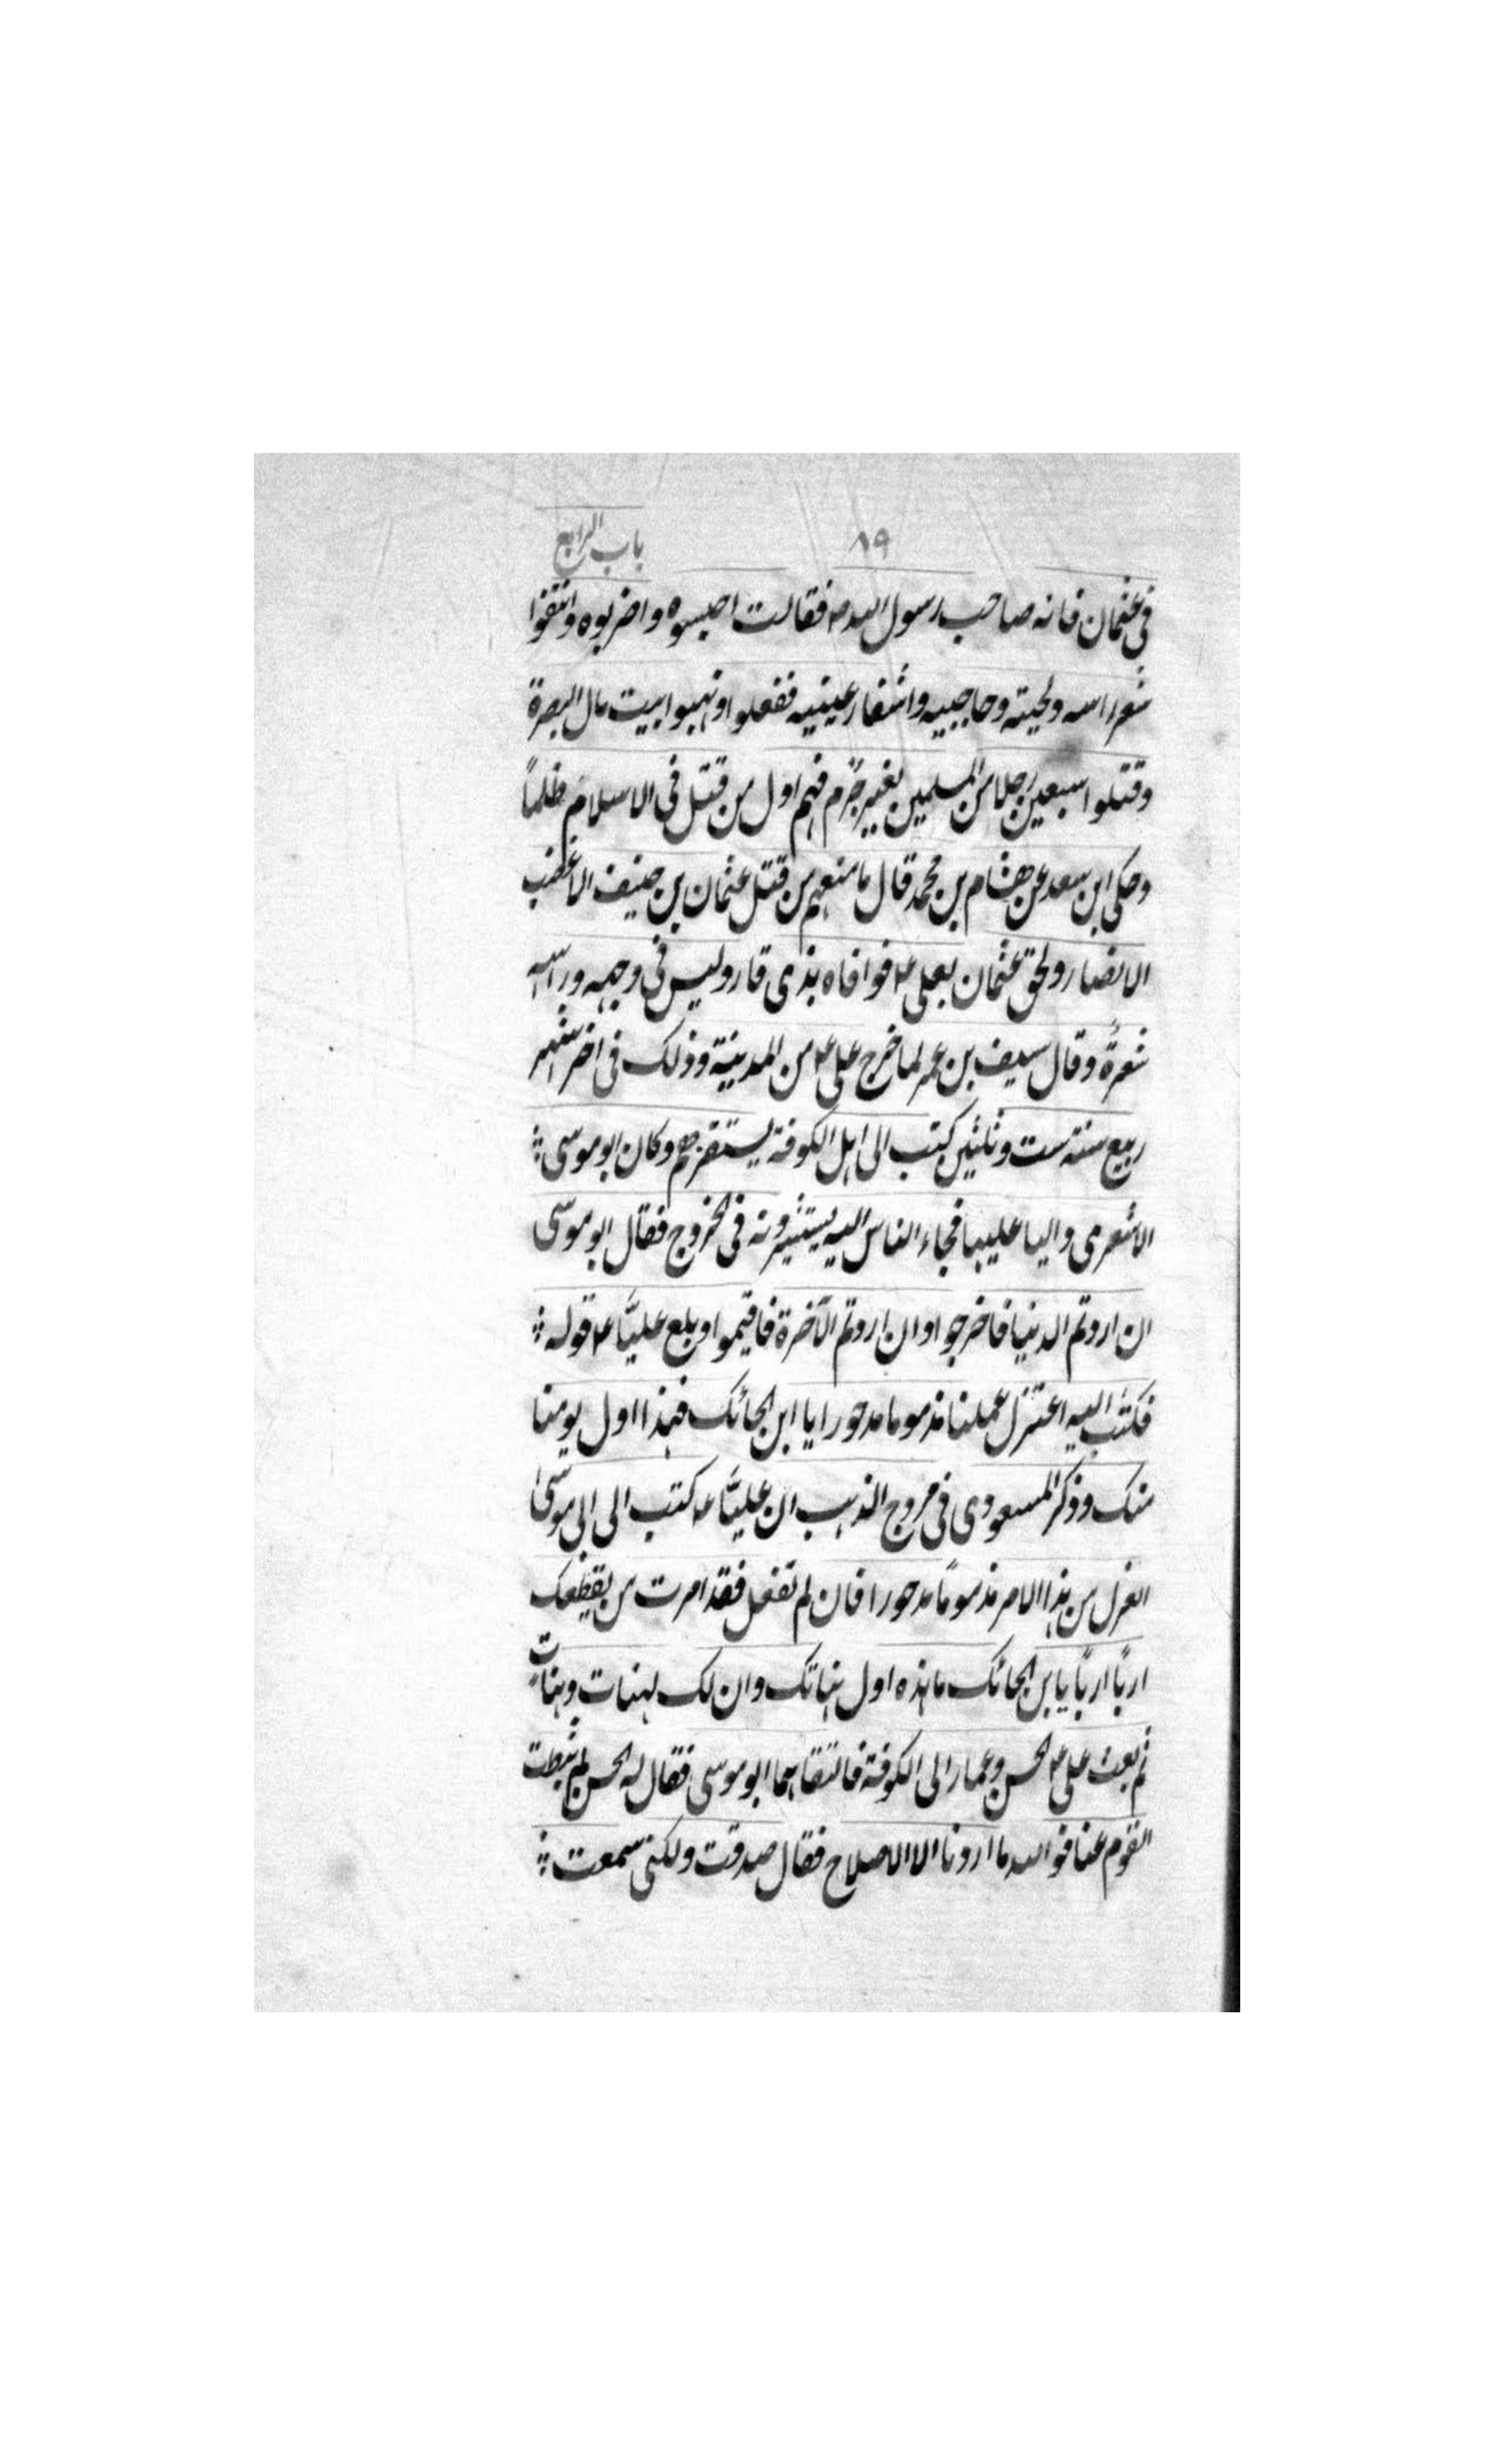 ٨٩ باب الرابع
فى عثمان فانه صاحب رسول الله ص فقالت احبسوه واضربوه وانتفوا
شعر راسه ولحيته وحاجبيه واشفار عينيه ففعلوا ونهبوا بيت مال البصرة
وقتلوا سبعين رجلا من المسلمين بغير جرم فهم اول من قتل فى الاسلام ظلمًا
وحكى ابن سعد عن هشام بن محمد قال ما منعهم من قتل عثمان بن حنيف الا غضب
الانصار ولحق عثمان بعلى ع فوافاه بذى قار وليس فى وجهه وراسه
شعرةٌ وقال سيف بن عمر لما خرج على ع من المدينة وذلك فى اخر شهر
ربيع سنة ست وثلثين كتب الى اهل الكوفة يستنفرهم وكان ابو موسى
الاشعرى واليا عليها فجاء الناس اليه يستشيرونه فى الخروج فقال ابو موسى
ان اردتم الدنيا فاخرجوا وان اردتم الآخرة فاقيموا وبلغ عليًّا ع قوله
فكتب اليه اعتزل عملنا مذموما مدحورا يا ابن الحائك فهذا اول يومنا
منك وذكر المسعودى فى مروج الذهب ان عليًّا ع كتب الى ابى موسىٰ
انعزل من هذا الامر مذمومًا مدحورا فان لم تفعل فقد امرت من يقطعك
اربًا اربًا يا بن الحائك ما هذه اول هناتك وان لك لهنات وهنات
ثم بعث على ع الحسن وعمار الى الكوفة فالتقاهما ابو موسى فقال له الحسن لم ثبطت
القوم عنا فوالله ما اردنا الا الاصلاح فقال صدقت ولكنى سمعت